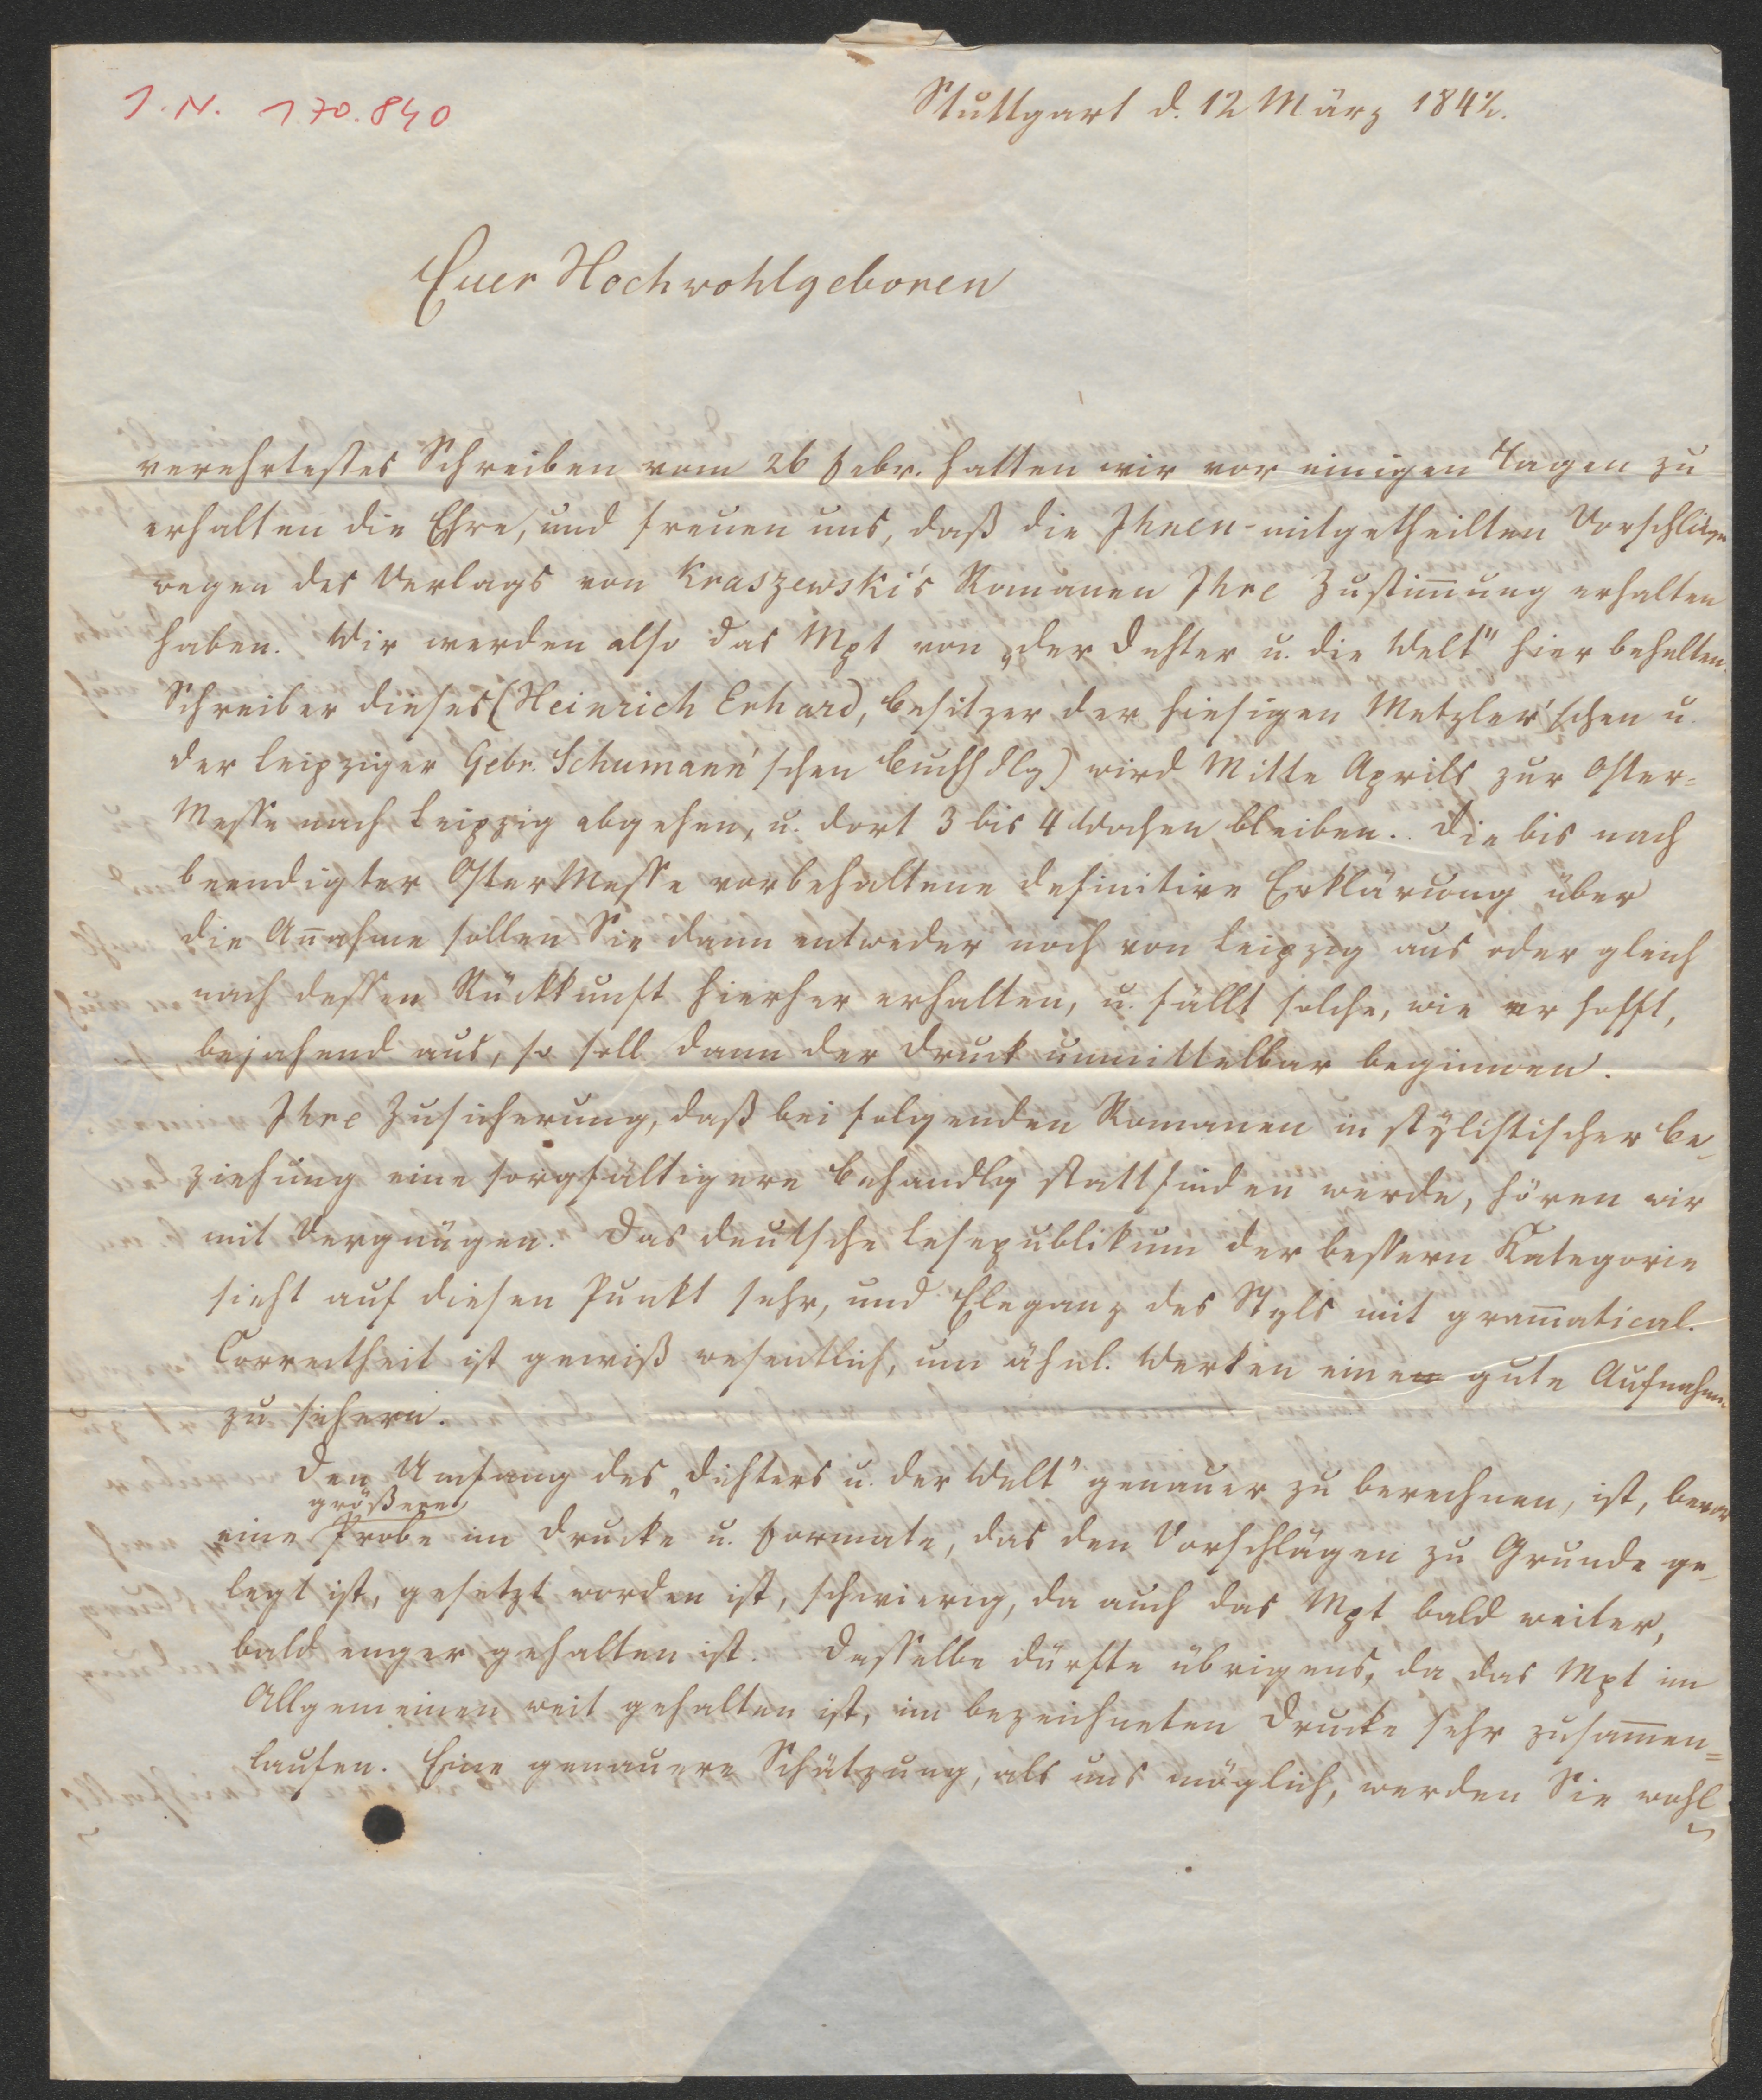 J. N. 170.840
Stuttgart d. 12 März 1842.
Euer Hochwohlgeboren
verehrtestes Schreiben vom 26 Febr. hatten wir vor einigen Tagen zu
erhalten die Ehre, und freuen uns, daß die Ihnen mitgetheilten Vorschläge
wegen des Verlags von Kraszewski's Romanen Ihre Zustim̄ung erhalten
haben. Wir werden also das Mpt von „der Dichter u. die Welt" hier behalten.
Schreiber dieses (Heinrich Erhard, Besitzer der hiesigen Metzler'schen u.
der Leipziger Gebr. Schumann'schen Buchhdlg) wird Mitte Aprils zur Oster=
Messe nach Leipzig abgehen, u. dort 3 bis 4 Wochen bleiben. Die bis nach
beendigter OsterMesse vorbehaltene definitive Erklärung über
die An̄ahme sollen Sie dann entweder noch von Leipzig aus oder gleich
nach dessen Rückkunft hierher erhalten, u. fällt solche, wie er hofft,
bejahend aus, so soll dann der Druck unmittelbar beginnen.
Ihre Zusicherung, daß bei folgenden Romanen in stylistischer Be-
ziehung eine sorgfältigere Behandlg stattfinden werde, hören wir
mit Vergnügen. Das deutsche Lesepublikum der bessern Kategorie
sieht auf diesen Punkt sehr, und Eleganz des Styls mit gram̄atical.
Correctheit ist gewiß wesentlich, um ähnl. Werken eine gute Aufnahme
zu sichern.
Den Umfang des „Dichters u. der Welt" genauer zu berechnen, ist, bevor
größere
eine Probe im Drucke u. Formate, das den Vorschlägen zu Grunde ge-
legt ist, gesetzt worden ist, schwierig, da auch das Mpt bald weiter,
bald enger gehalten ist. Dasselbe dürfte übrigens, da das Mpt im
Allgemeinen weit gehalten ist, im bezeichneten Drucke sehr zusam̄en=
laufen. Eine genauere Schätzung, als uns möglich, werden Sie wohl